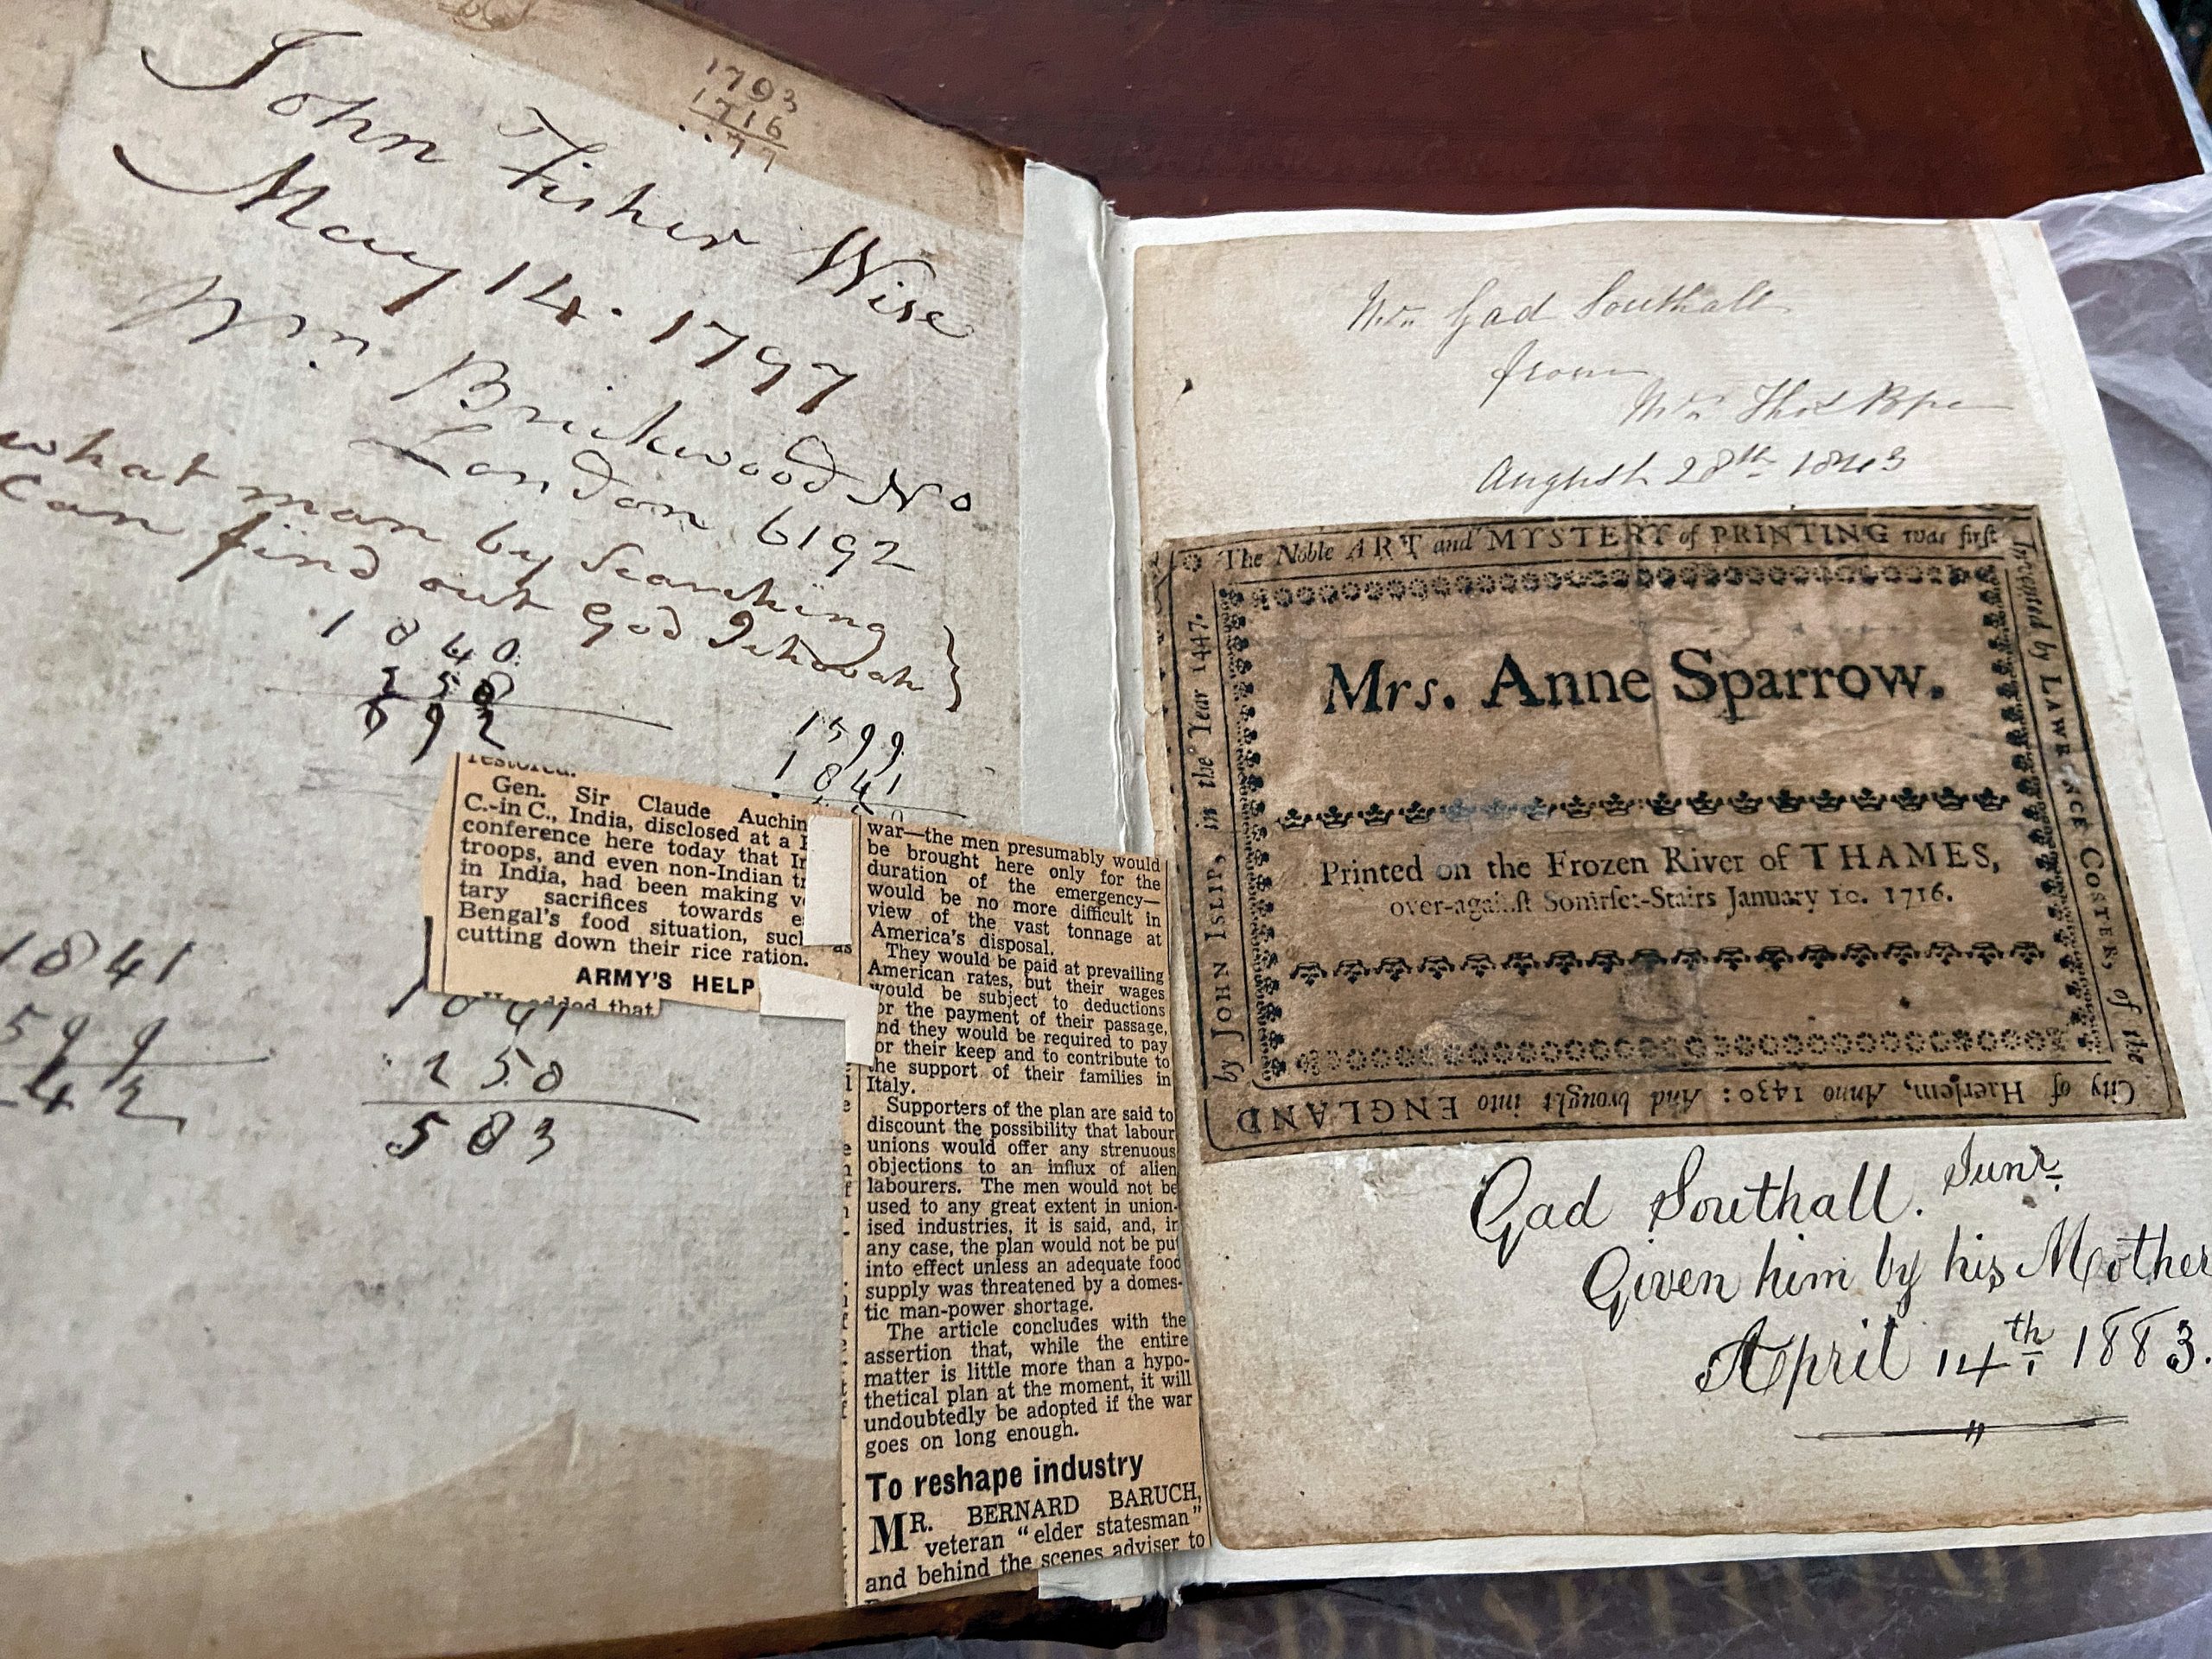 1793
1716
..77
John Fisher Wise
May 14. 1797
Wm Brickwood No
London 6192
what man by Searching
Can find out God Jehovah }
1840
258
692
1599
1841
restored.
Gen. Sir Claude Auchin
C.-in C., India, disclosed at a
conference here today that
troops, and even non-Indian
in India, had been making
tary sacrifices towards
Bengal's food situation, such as
cutting down their rice ration.
ARMY'S HELP
He added that
1841
599
42
1841
258
583
war—the men presumably would
be brought here only for the
duration of the emergency—
would be no more difficult in
view of the vast tonnage at
America's disposal.
They would be paid at prevailing
American rates, but their wages
would be subject to deductions
or the payment of their passage,
nd they would be required to pay
or their keep and to contribute to
he support of their families in
Italy.
Supporters of the plan are said to
discount the possibility that labour
unions would offer any strenuous
objections to an influx of alien
labourers. The men would not be
used to any great extent in union-
ised industries, it is said, and, in
any case, the plan would not be put
into effect unless an adequate food
supply was threatened by a domes-
tic man-power shortage.
The article concludes with the
assertion that, while the entire
matter is little more than a hypo-
thetical plan at the moment, it will
undoubtedly be adopted if the war
goes on long enough.
To reshape industry
MR. BERNARD BARUCH,
veteran "elder statesman"
and behind the scenes adviser to
Gad Southall
from
Thos
August 28th 1843
The Noble ART and MYSTERY of PRINTING was first
Invented by LAWRENCE COSTER, of the
City of Haerlem, Anno 1430: And brought into ENGLAND
by JOHN ISLIP, in the Year 1447.
Mrs. Anne Sparrow.
Printed on the Frozen River of THAMES,
over-against Somerset-Stairs January 10. 1716.
Gad Southall. Junr.
Given him by his Mother
April 14th 1883.